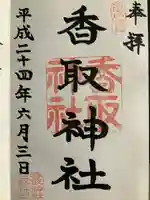 奉拝
香取神社
香取
神社
平成二十四年六月三日